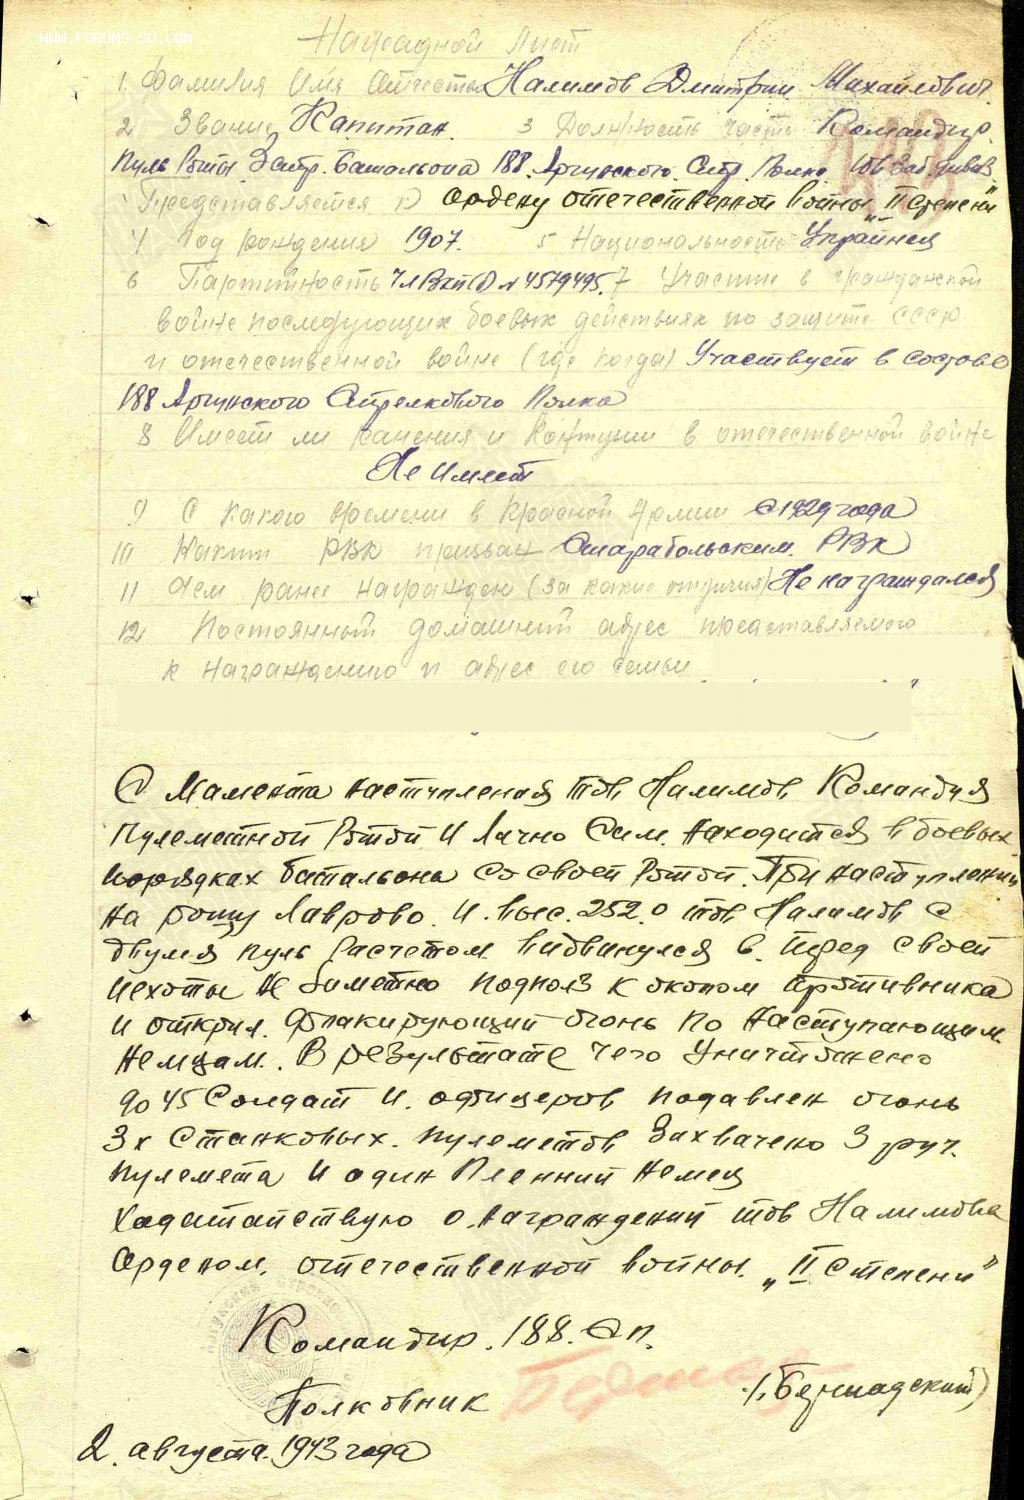 WWW.FORUMS-SU.COM
Наградной Лист
1. Фамилия Имя Отчество Налимов Дмитрий Михайлович.
2 Звание Капитан. 3 Должность часть Командир.
Пуль Роты 3 стр. Баталиона 188. Аргунского. Стр. Полка
Представляется к Ордену отечественной войны „II степени"
4 Год рождения 1907. 5 Национальность Украинец
6 Партийность Чл ВКП(б) № 4579495. 7 Участие в гражданской
войне последующих боевых действиях по защите СССР
и отечественной войне (где когда) Участвует в составе
188 Аргунского Стрелкового Полка
8 Имеет ли ранения и контузии в отечественной войне
Не имеет
9 С какого времени в Красной Армии С 1929 года
10 Каким РВК призван Старобольским. РВК
11 Чем ранее награжден (за какие отличия) Не награждался
12 Постоянный домашний адрес представляемого
к награждению и адрес его семьи
С Мамента наступления тов Налимов Командуя
Пулеметной Ротой И Лично Сам. Находится в боевых
порядках батальона со своей Ротой. При наступлении
на рощу Лаврово. И. выс. 252.0 тов Налимов с
двумя пуль расчетом выдвинулся в. перед своей
пехоты Не заметно подполз к окопом противника
и открил. флакирующий огонь по наступающим.
Немцам.. В результате чего уничтожено
до 45 Солдат И. офицеров подавлен огонь
3х Станковых. пулеметов Захвачено 3 руч.
пулемета И один Пленний немец
Ходатайствую о. награждений тов Налимова
Орденом. отечественной войны. „II степени"
Командир. 188. Сп.
Полковник (Бериадский)
2. августа. 1943 года